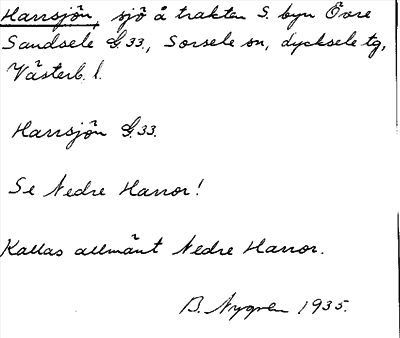 Harrsjön, sjö å trakten S. byn Övre
Sandsele G.33., Sorsele sn, Lycksele tg,
Västerb. l.
Harrsjön G.33.
Se Nedre Harror!
Kallas allmänt Nedre Harror.
B. Nygren 1935.